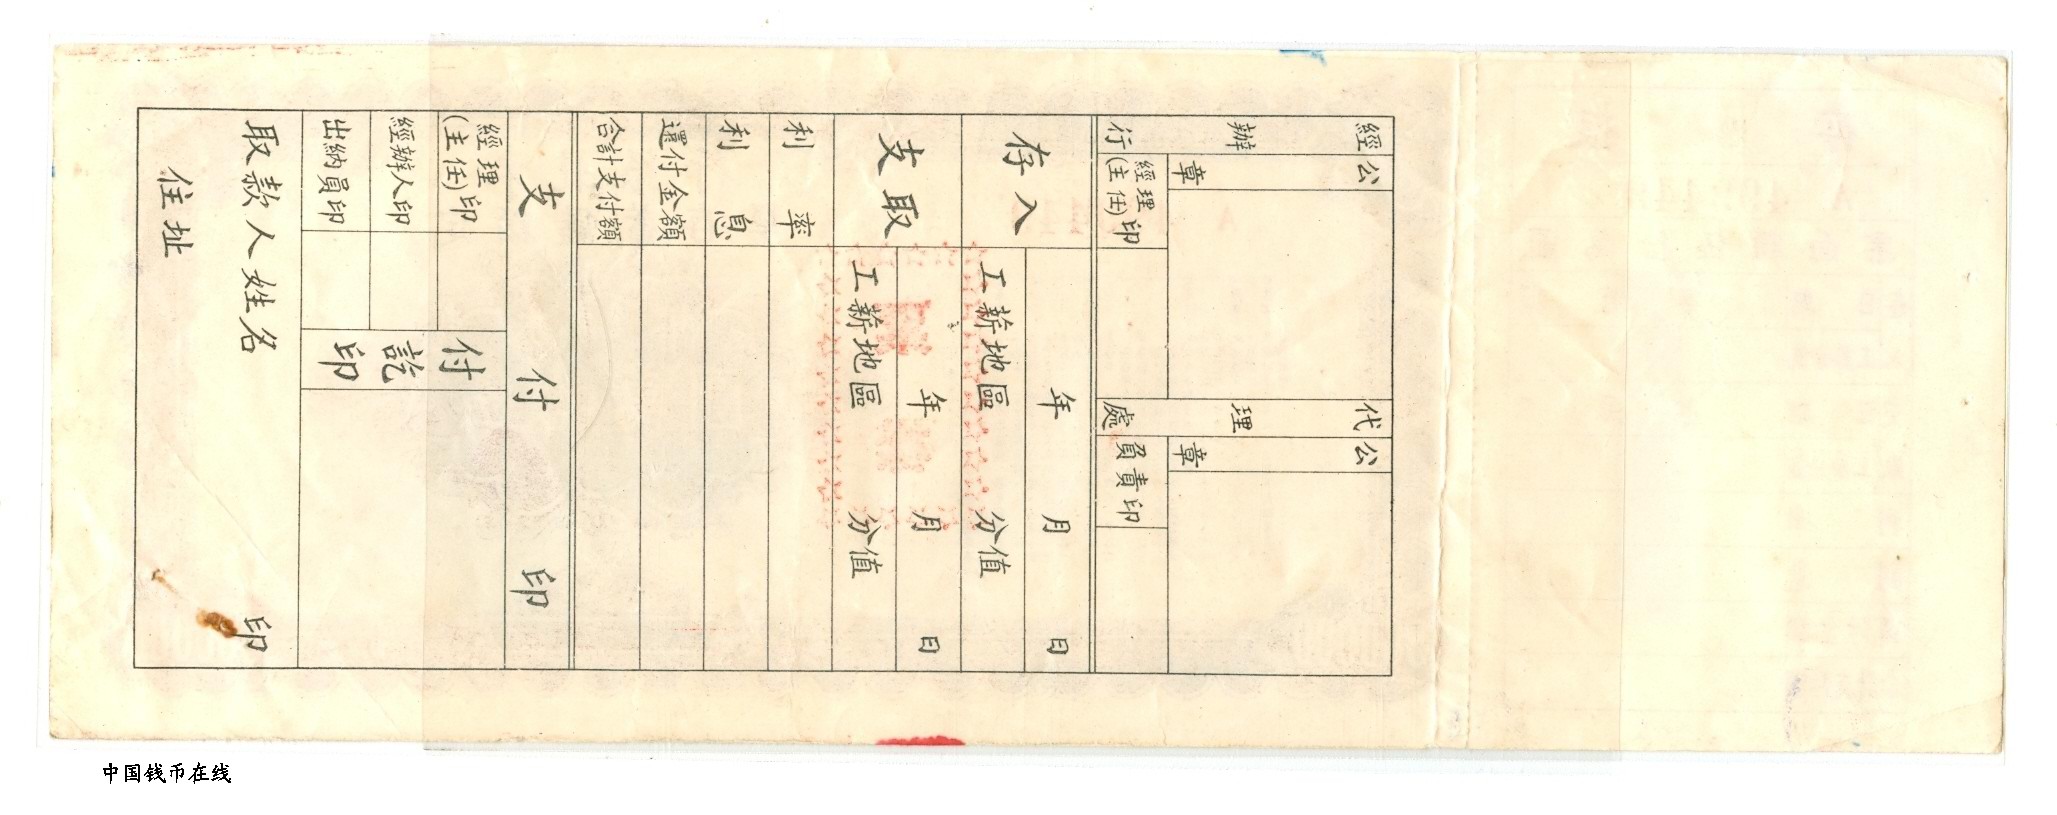 經辦行
公章
經理(主任)印
代理處
公章
負責印
存入
年 月 日
工薪地區 分值
支取
年 月 日
工薪地區 分值
利率
利息
還付金額
合計支付額
支付印
經理(主任)印
經辦人印
出納員印
付訖印
取款人姓名 印
住址
中国钱币在线